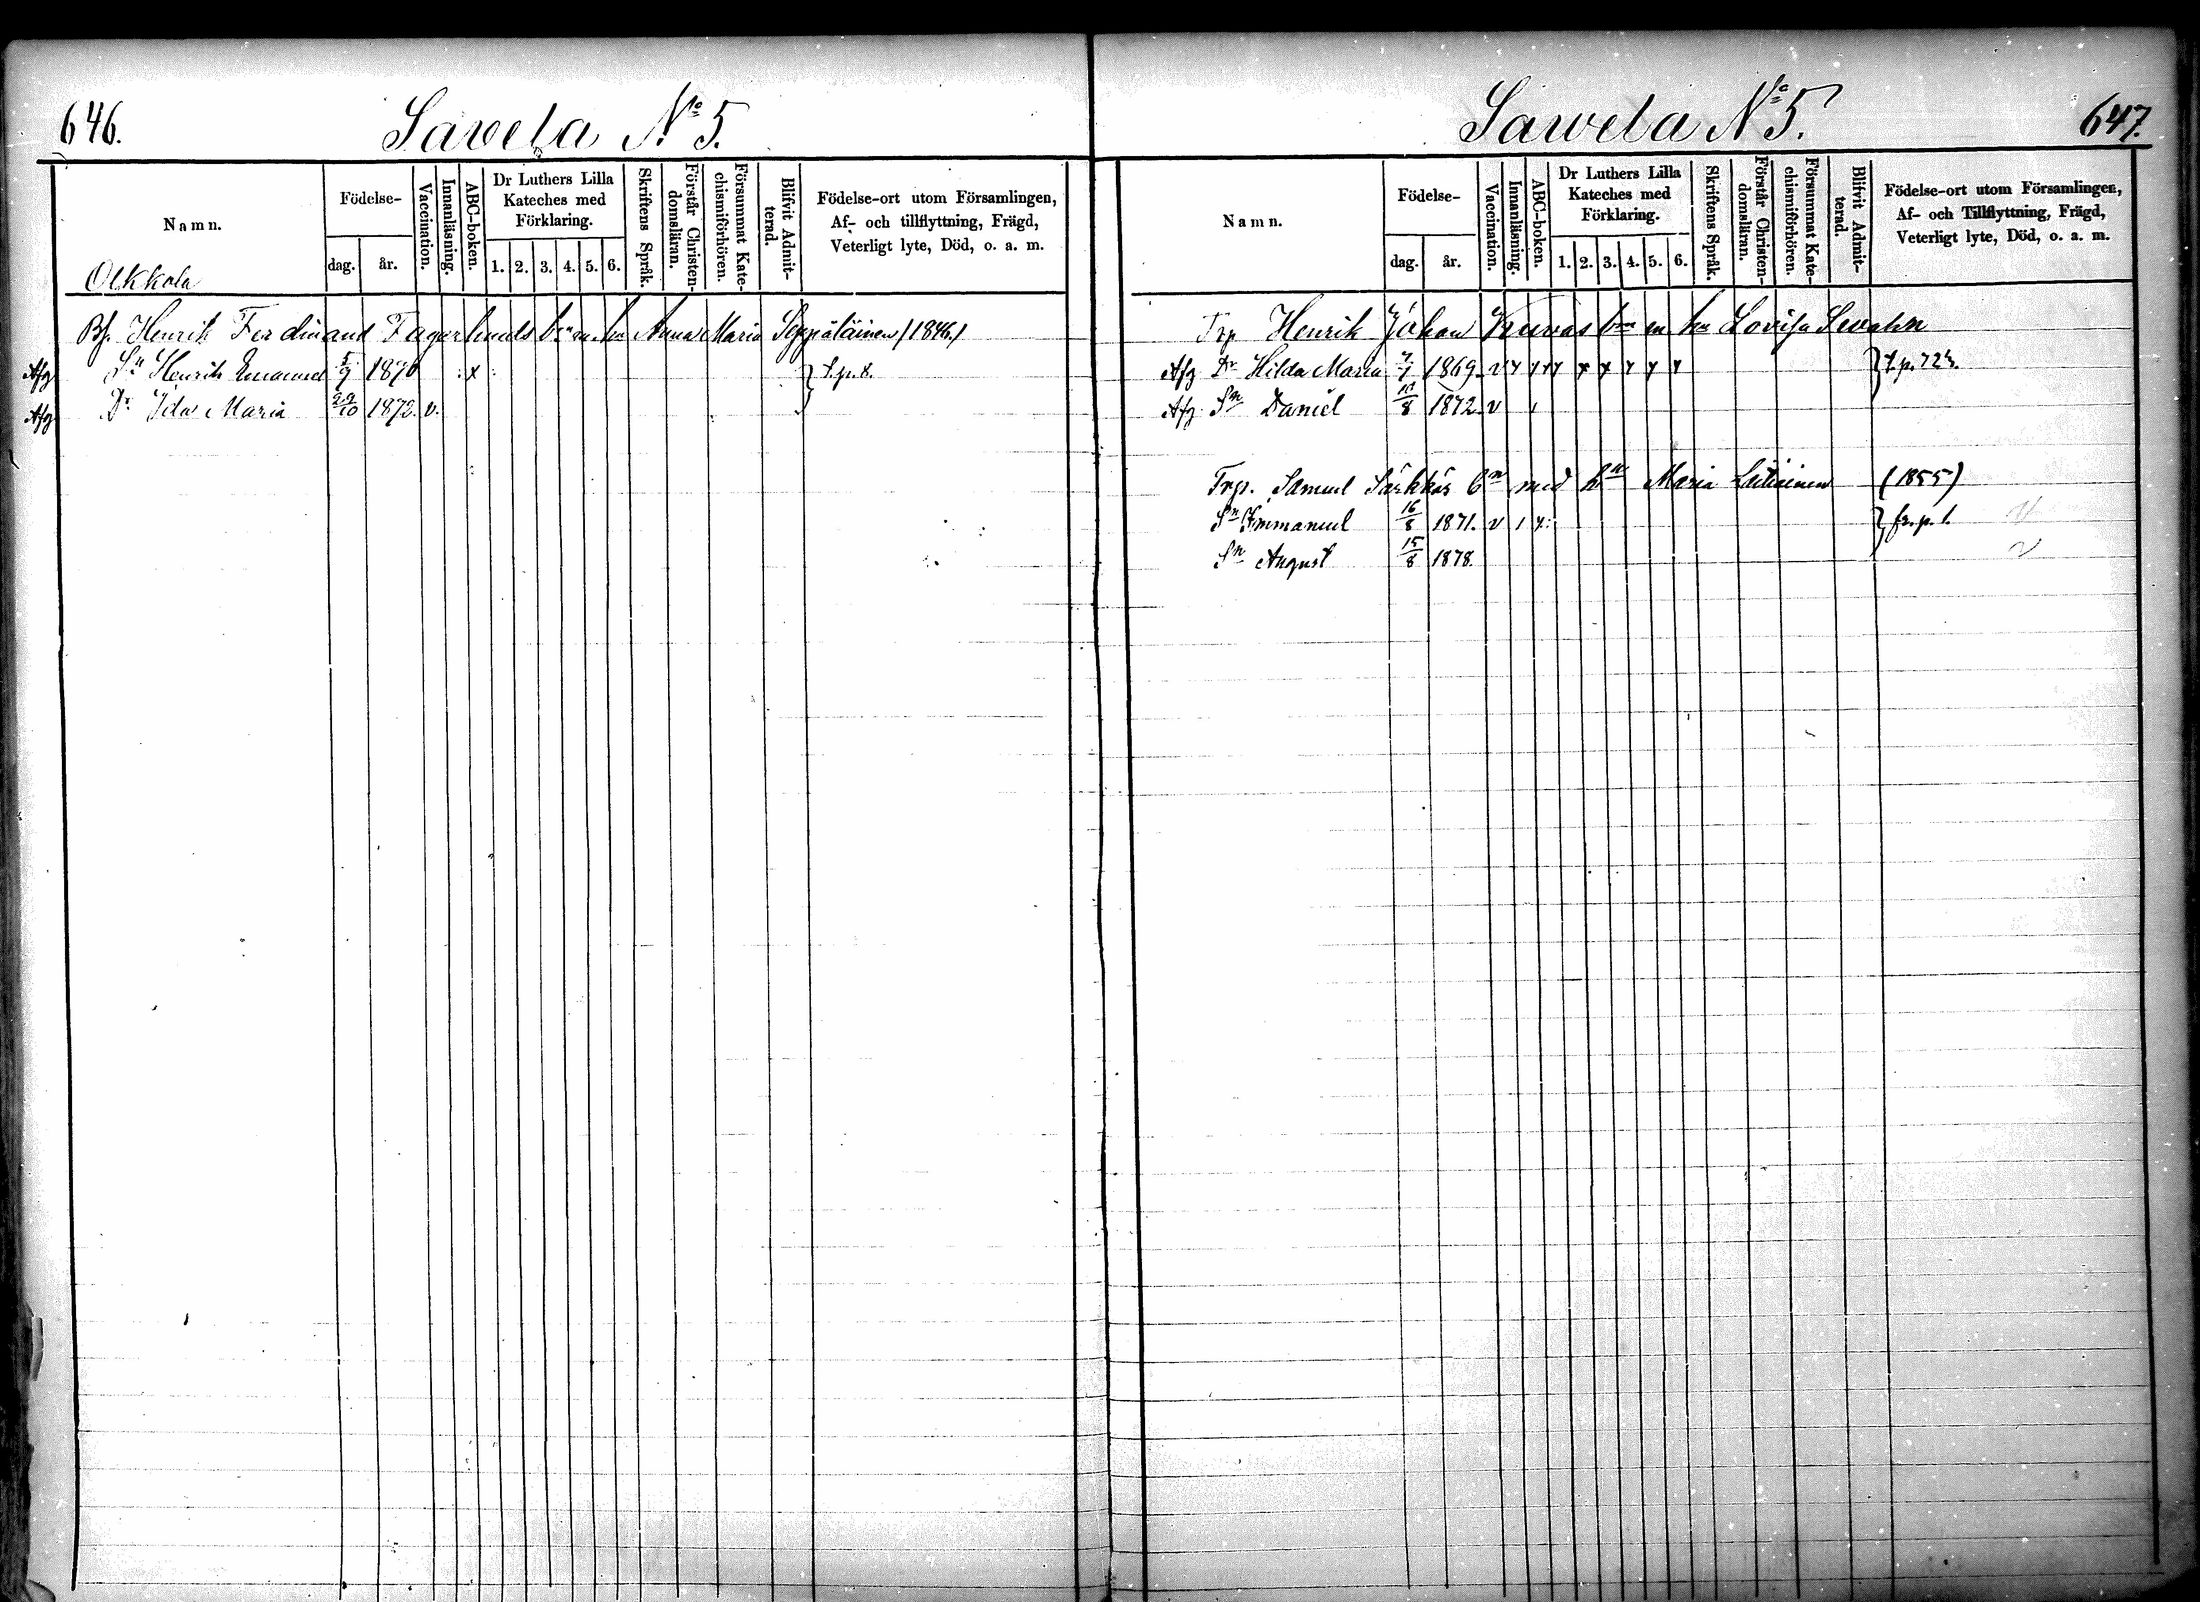 646.
Savela No 5.
Namn.
Födelse-
dag.
år.
Vaccination.
Innanläsning.
ABC-boken.
Dr Luthers Lilla Kateches med Förklaring.
1. 2. 3. 4. 5. 6.
Skriftens Språk.
Förstår Christen-domsläran.
Försummat Kate-chismiförhören.
Blifvit Admit-terad.
Födelse-ort utom Församlingen,
Af- och tillflyttning, Frägd,
Veterligt lyte, Död, o. a. m.
Olkkola
Bf. Henrik Ferdinand Fagerlunds bn m. hu Anna Maria Seppäläinen (1846)
Afg Sn Henrik Emanuel 5/9 1870 x
Afg Dr Ida Maria 29/10 1872. v.
Sawela No 5.
647.
Namn.
Födelse-
dag.
år.
Vaccination.
Innanläsning.
ABC-boken.
Dr Luthers Lilla Kateches med Förklaring.
1. 2. 3. 4. 5. 6.
Skriftens Språk.
Förstår Christen-domsläran.
Försummat Kate-chismiförhören.
Blifvit Admit-terad.
Födelse-ort utom Församlingen,
Af- och Tillflyttning, Frägd,
Veterligt lyte, Död, o. a. m.
Trp Henrik Johan Kuvas bn m hu Lovisa
Afg Dr Hilda Maria 1869. v
Afg Sn Daniel 1872 v
Trp. Samuel Särkkäs bn med hu Maria (1855)
Sn Emmanuel 16/8 1871. v
Sn August 15/8 1878.